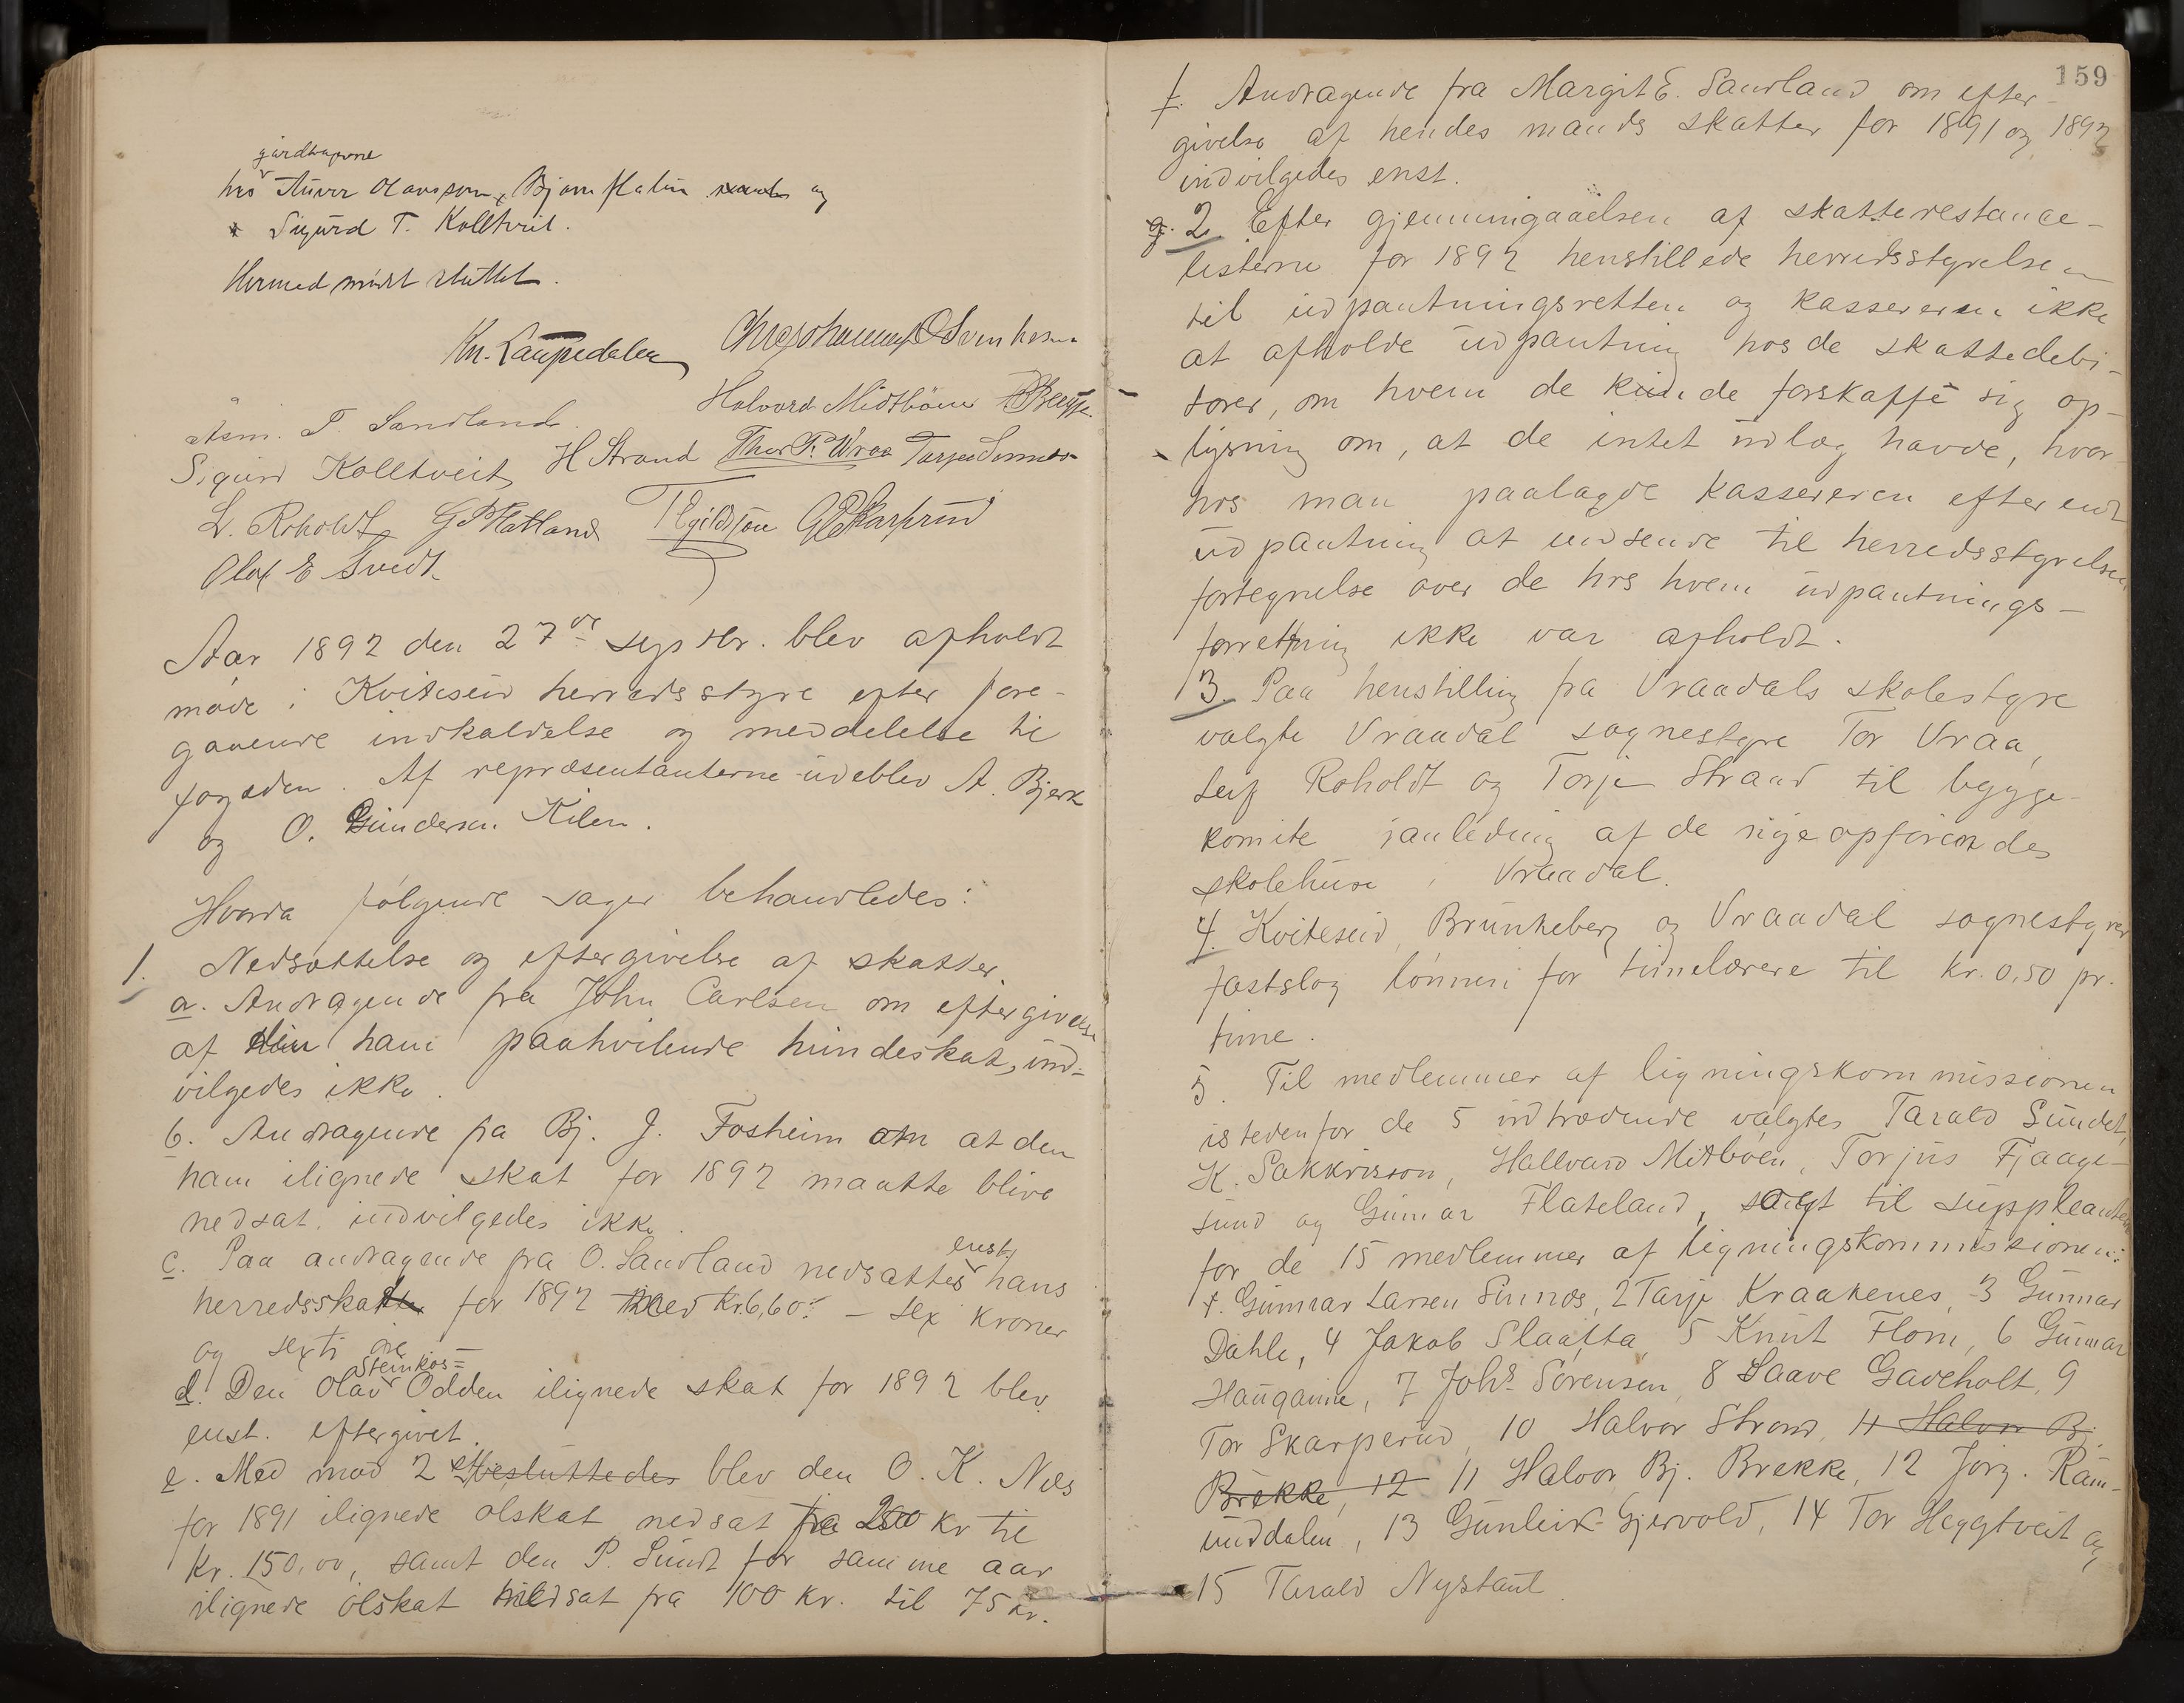 gårdkaperne
hos Anver Olavsson, Bjørn Hatun og
Sigurd T. Kolltveit.
Hermed mødet sluttet.
Kn. Laupedalen
Halvord Midtbøen
Åsm. T. Sandland.
Sigurd Kolltveit H Strand Thor T. Wraa
L. Roholdt G P Flatland T Egildson G O Skarprud
Olaf E Sundt
Aar 1892 den 27de septbr. blev afholdt
møde i Kviteseid herredsstyre efter fore-
gaaende indkaldelse og meddelelse til
fogden. Af repræsentanterne udeblev A. Bjerk
og O. Gundersen Kilen.
Hvorda følgende sager behandledes:
1. Nedsættelse og eftergivelse af skatter
a. Andragende fra John Carlsen om eftergivelse
af den ham paahvilende hundeskat, ind-
vilgedes ikke.
b. Andragende fra Bj. J. Fosheim om at den
ham ilignede skat for 1892 maatte blive
nedsat, indvilgedes ikke.
c. Paa andragende fra O. Sandland nedsattes enst. hans
herredsskat for 1892 med Kr. 6,60 – sex kroner
og sexti øre
d. Den Olav Steinkos= Odden ilignede skat for 1892 blev
enst. eftergivet.
e. Med mod 2 st. besluttedes blev den O. K. Næs
for 1891 ilignede ølskat nedsat fra 200 kr til
kr. 150,00, samt den P. Sundt for samme aar
ilignede ølskat nedsat fra 100 kr. til 75 kr.
159
f. Andragende fra Margit E. Sandland om efter-
givelse af hendes mands skatter for 1891 og 1892
indvilgedes enst.
g. 2. Efter gjennemgaaelsen af skatterestance-
listerne for 1892 henstillede herredsstyrelsen
til udpantningsretten og kassereren ikke
at afholde udpantning hos de skattedebi-
torer, om hvem de kunde forskaffe sig op-
lysning om, at de intet udlæg havde, hvor-
hos man paalagde kassereren efter endt
udpantning at indsende til herredsstyrelsen
fortegnelse over de hos hvem udpantnings-
forretning ikke var afholdt.
3. Paa henstilling fra Vraadals skolestyre
valgte Vraadal sognestyre Tor Vraa,
Leif Roholdt og Torje Strand til bygge-
komite i anledning af de nye opførendes
skolehuse i Vraadal.
4. Kviteseid, Brunkeberg og Vraadal sognestyrer
fastslog lønnen for timelærere til kr. 0,50 pr.
time.
5. Til medlemmer af ligningskommissionen
istedenfor de 5 udtrædende valgtes Tarald Sundet,
K. Sakkrisson, Hallvard Mitbøen, Torjus Fjaage-
sund og Gunnar Flateland, samt til suppleanter
for de 15 medlemmer af ligningskommissionen:
1. Gunnar Larsen Sinnos, 2 Tarje Kraakenes, 3 Gunnar
Dahle, 4 Jakob Slaatta, 5 Knut Flom, 6 Gunnar
Haugane, 7 Johs Sørensen, 8 Saave Gaveholt, 9
Tor Skarperud, 10 Halvor Strand, 11 Halvor Bj.
Brekke, 12 11 Halvor Bj. Brekke, 12 Jørg. Ram-
unddalen, 13 Gunleik Gjervold, 14 Tor Heggtveit og
15 Tarald Nystaul